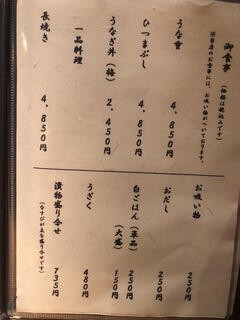 御食事(価格は税込みです)
※当店のお食事には、お吸い物がついております。
うな重 4,850円
ひつまぶし 4,850円
うなぎ丼(梅) 2,450円
一品料理
長焼き 4,850円
お吸い物 250円
おだし 250円
白ごはん(単品) 250円
(大盛) 150円
うざく 480円
漬物盛り合せ 735円
(なすびが主な盛り合せです)